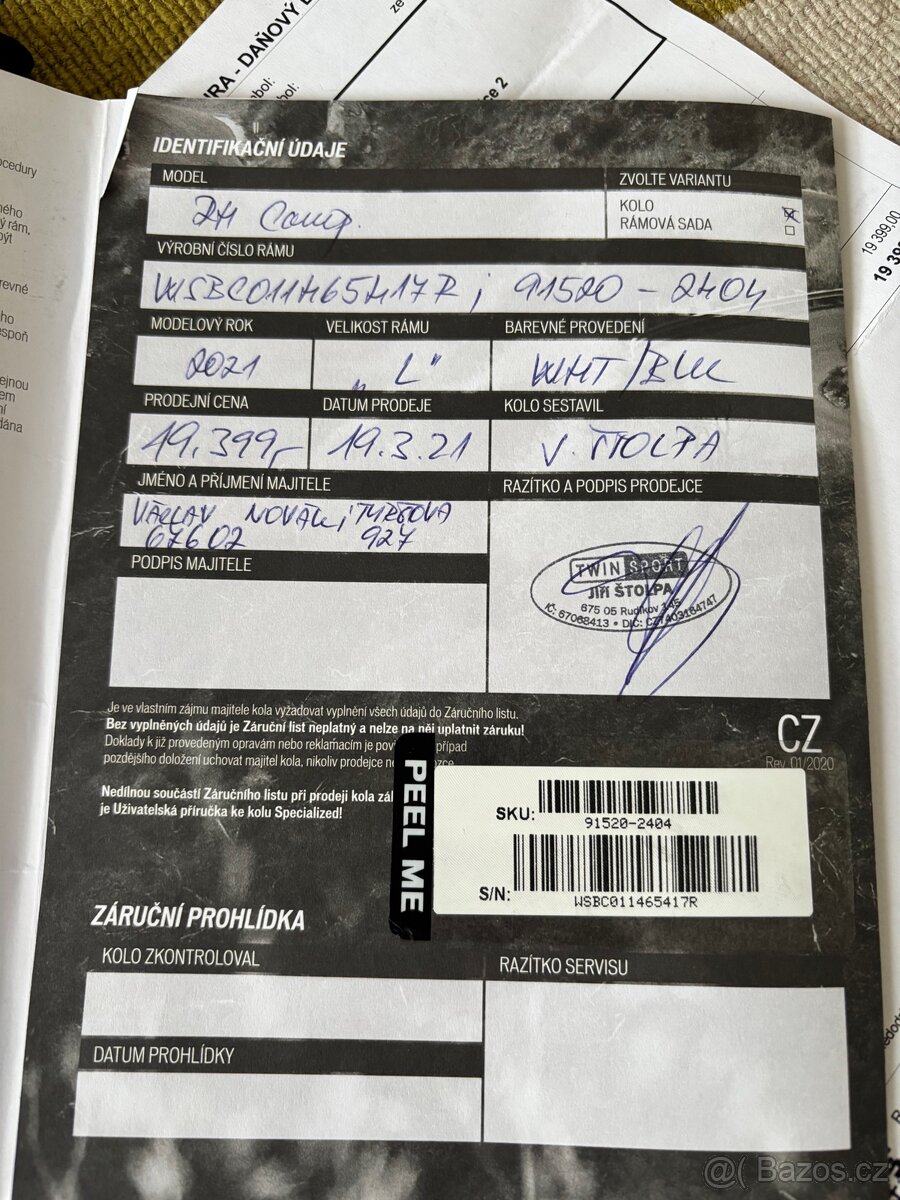 RA - DAŇOVÝ
bol:
19 399,00
IDENTIFIKAČNÍ ÚDAJE
MODEL
ZVOLTE VARIANTU
KOLO
RÁMOVÁ SADA
VÝROBNÍ ČÍSLO RÁMU
WSBC011465417R ; 91520 - 2404
MODELOVÝ ROK
VELIKOST RÁMU
BAREVNÉ PROVEDENÍ
2021
„L"
WHT/BLK
PRODEJNÍ CENA
DATUM PRODEJE
KOLO SESTAVIL
19.399,-
19.3.21
V. ŠTOLPA
JMÉNO A PŘÍJMENÍ MAJITELE
RAZÍTKO A PODPIS PRODEJCE
VÁCLAV NOVÁK
67602 927
PODPIS MAJITELE
TWIN SPORT
JIŘÍ ŠTOLPA
675 05 Rudíkov 145
IČ: 67068413 • DIČ: CZ7403164747
Je ve vlastním zájmu majitele kola vyžadovat vyplnění všech údajů do Záručního listu.
Bez vyplněných údajů je Záruční list neplatný a nelze na něj uplatnit záruku!
Doklady k již provedeným opravám nebo reklamacím je pov případ
pozdějšího doložení uchovat majitel kola, nikoliv prodejce
CZ
Rev. 01/2020
Nedílnou součástí Záručního listu při prodeji kola
je Uživatelská příručka ke kolu Specialized!
PEEL ME
SKU:
91520-2404
S/N:
WSBC011465417R
ZÁRUČNÍ PROHLÍDKA
KOLO ZKONTROLOVAL
RAZÍTKO SERVISU
DATUM PROHLÍDKY
@( Bazos.cz